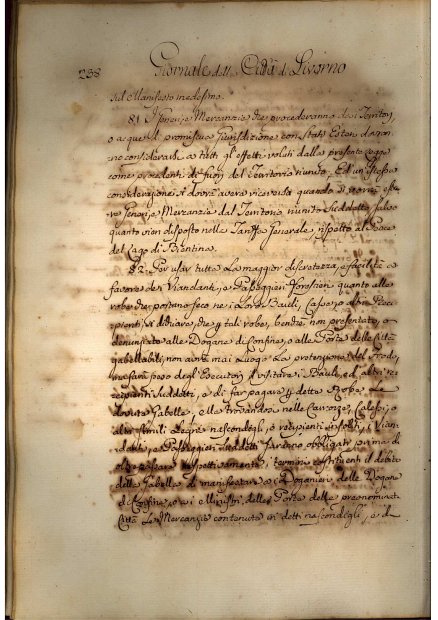 238 Giornale della Città di Livorno
sul Manifesto medesimo.
81. I Generi, e Mercanzie che procederanno dai Territorj,
o acque di promiscua Giurisdizione con Stati Esteri dovran
no considerarsi a tutti gl'effetti voluti dalla presente Legge
come procedenti da fuori del Territorio riunito, Ed un istessa
considerazione si dovrà avere viceversa quando si
Generi, e Mercanzie dal Territorio riunito Suddetto salvo
quanto vien disposto nella Tariffa Generale rispetto al Pesce
del Lago di Bientina.
82. Per usar tutta la maggior discretezza, e facilità a
favore dei Viandanti, e Passeggieri Forestieri quanto alle
robe che portano seco nei Loro Bauli, Casse, o altri Reci
pienti, si dichiara, che p tali robe, benchè non presentate, o
denunziate alle Dogane di Confine, o alle Porte delle Città
gabellabili, non avrà mai Luogo la pretenzione del Frodo,
ma sarà peso degl'Esecutori il visitare i Bauli, ed altri re
cipienti Suddetti, e di far pagare p dette Robe Le
dovute Gabelle, e se trovandosi nelle Carrozze, Calessi, o
altri simili Legni nascondigli, o recipienti insoliti, i Vian
danti, e Passeggieri Suddetti saranno obbligati prima di
oltrepassare respettivamente i termini costituenti il debito
della Gabella di manifestare ai Doganieri delle Dogane
di Confine, o ai Ministri delle Porte delle prenominate
Città Le Mercanzie contenute in detti nascondigli, e di